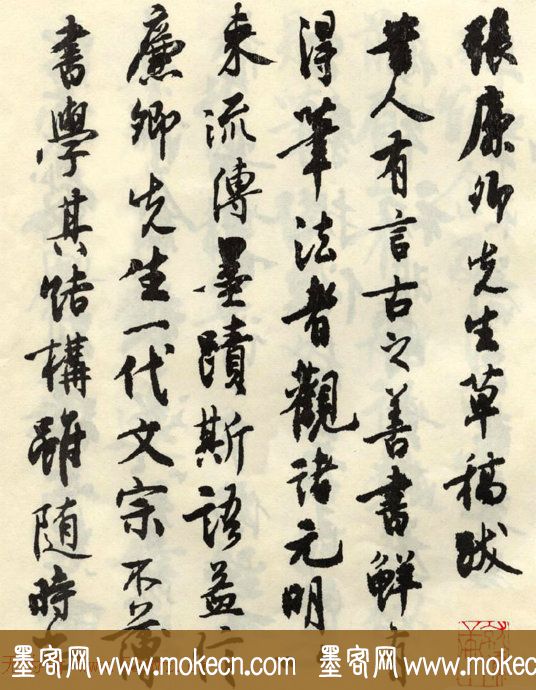 張廉卿先生草稿跋
昔人有言古之善書鮮有
得筆法者觀諸元明以
來流傳墨蹟斯語益信
廉卿先生一代文宗不薄
書學其結構雖隨時
墨客网 www.mokecn.com 墨客网 www.mokecn.com